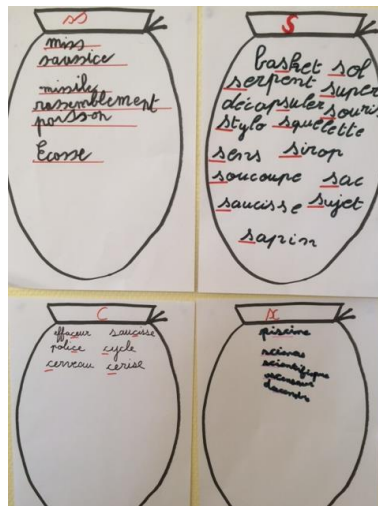 ss
miss
saussice
missile
rassemblement
poisson
Ecosse
s
basket sol
serpent super
décapsuler souris
stylo squelette
sens sirop
soucoupe sac
saucisse sujet
sapin
c
effaceur saucisse
police cycle
cerveau cerise
piscine
scientifique